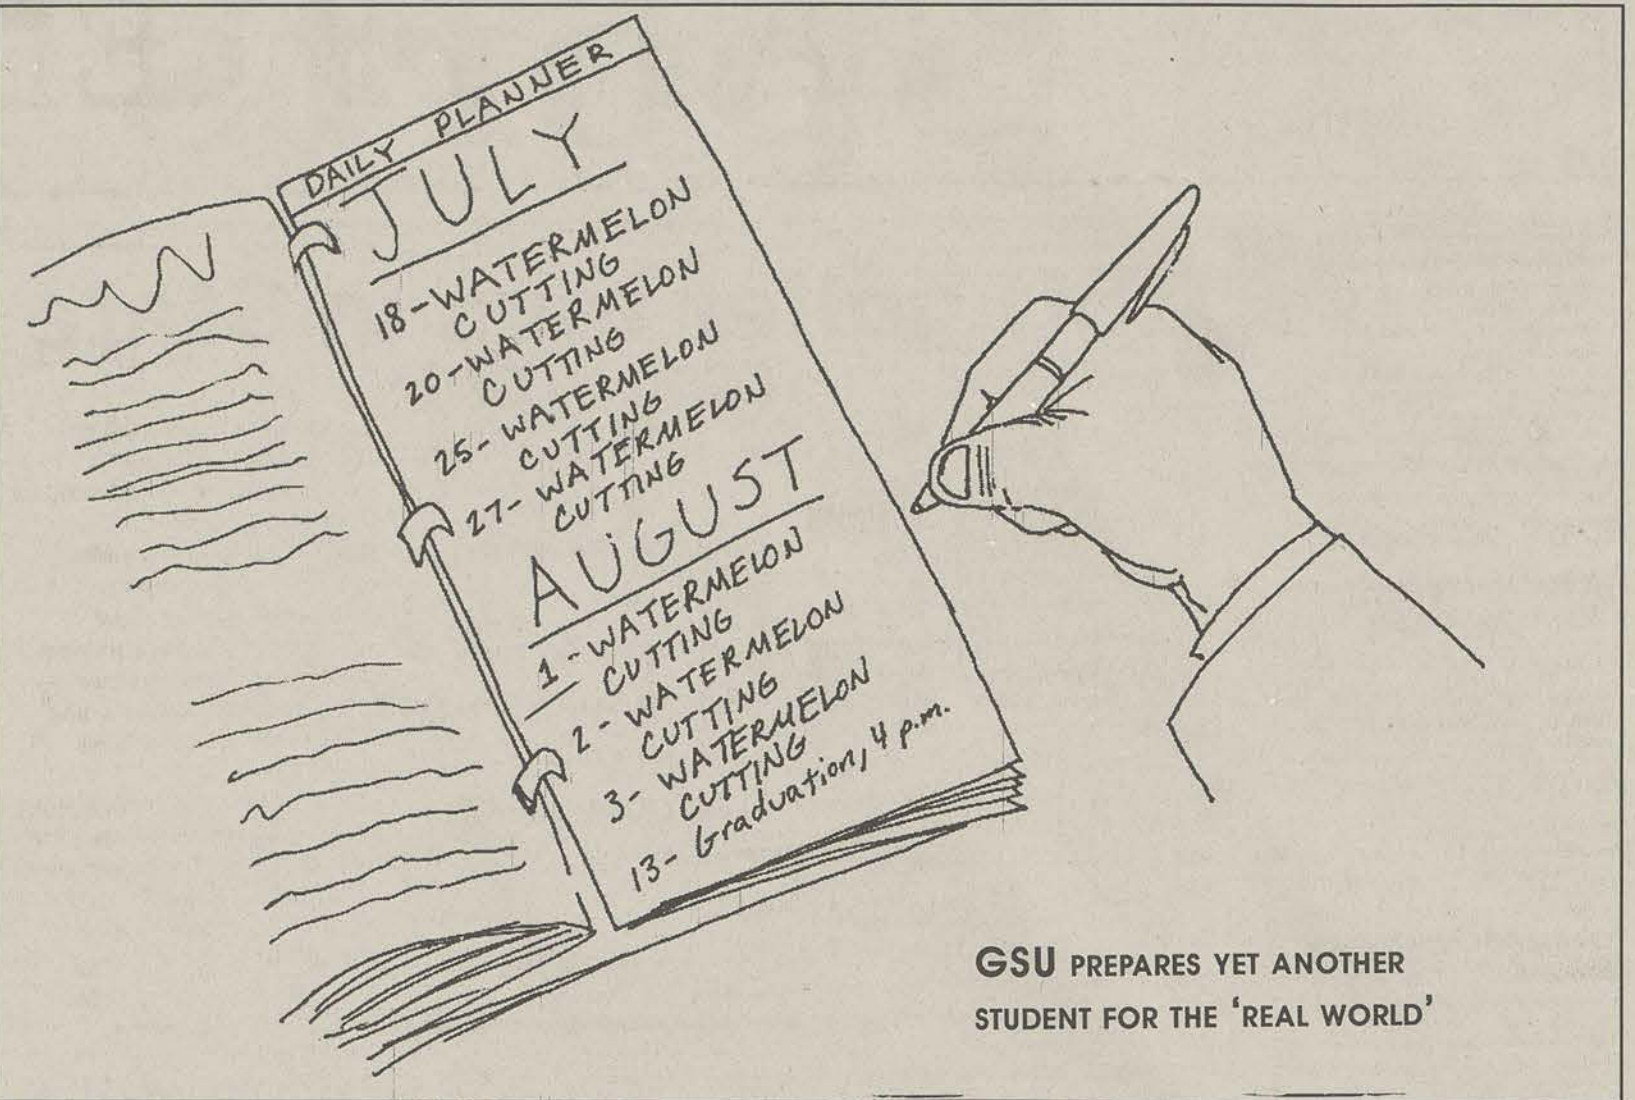 DAILY PLANNER
JULY
18-WATERMELON
CUTTING
20-WATERMELON
CUTTING
25-WATERMELON
CUTTING
27-WATERMELON
CUTTING
AUGUST
1-WATERMELON
CUTTING
2-WATERMELON
CUTTING
3-WATERMELON
CUTTING
13-Graduation, 4 p.m.
GSU PREPARES YET ANOTHER
STUDENT FOR THE 'REAL WORLD'